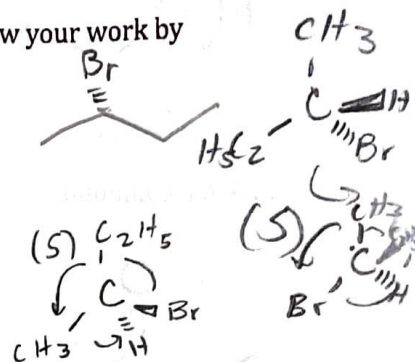 w your work by
Br
CH3
C H
H5C2 Br
(S) C2H5
C Br
CH3 H
(S) CH3
C
Br H